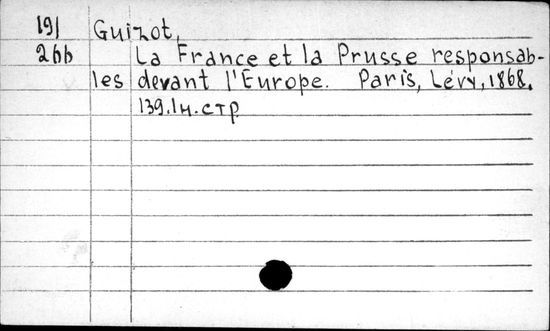 191 Guizot,
266 La France et la Prusse responsab-
les devant l'Europe. Paris, Lévy, 1868.
139.1н.стр.